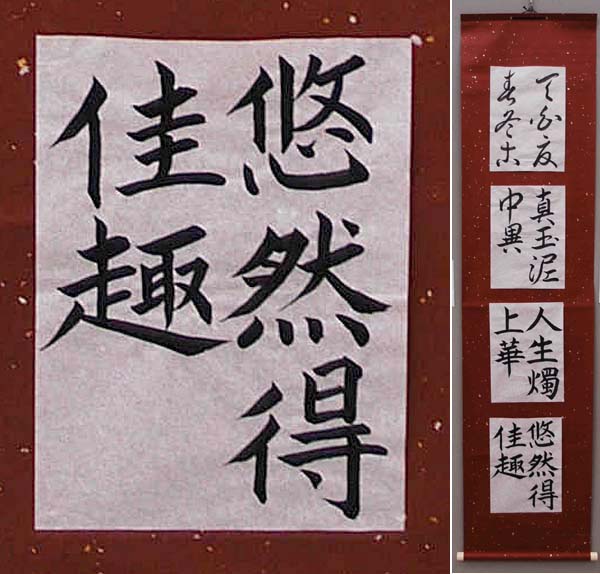 悠然得
佳趣
真玉泥
中異
人生燭
上華
悠然得
佳趣